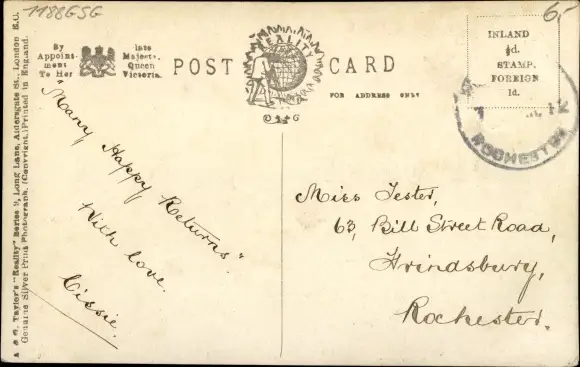 1188GSG
6,-
By
Appoint-
ment
To Her
late
Majesty,
Queen
Victoria.
POST CARD
REALITY
FOR ADDRESS ONLY
INLAND
½d.
STAMP.
FOREIGN
1d.
12
ROCHESTER
A & G. Taylor's "Reality" Series 9, Long Lane, Aldersgate St., London E.C.
Genuine Silver Print Photograph. (Copyright.) Printed in England.
"Many Happy Returns".
With love.
Cissie.
Miss Tester,
63, Bill Street Road,
Frindsbury,
Rochester.